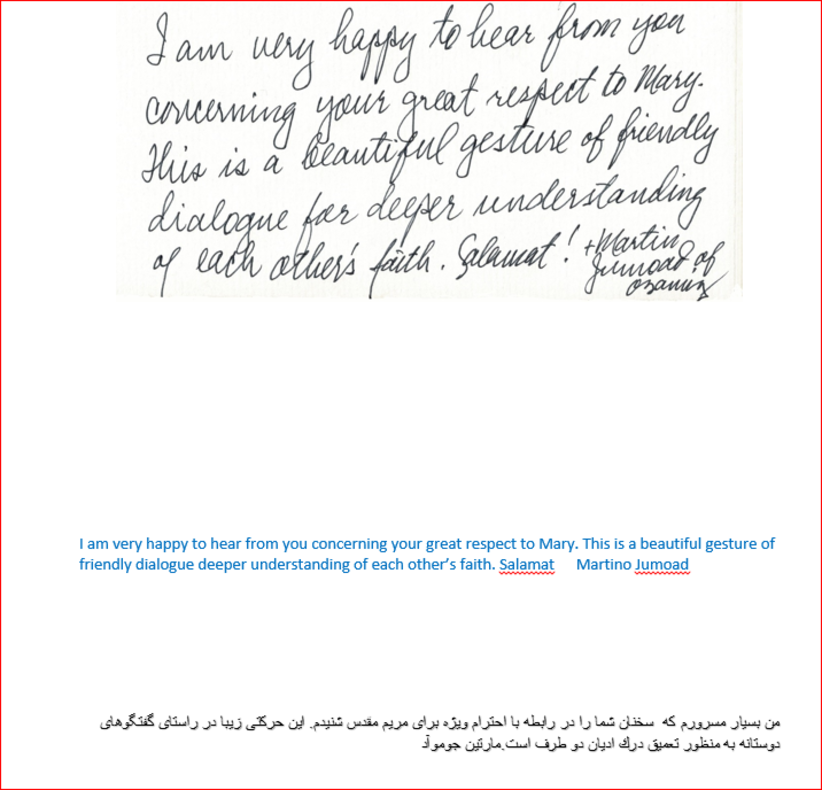 I am very happy to hear from you
concerning your great respect to Mary.
This is a beautiful gesture of friendly
dialogue for deeper understanding
of each other's faith. Salamat! +Martin
Jumoad of
Ozamiz
I am very happy to hear from you concerning your great respect to Mary. This is a beautiful gesture of
friendly dialogue deeper understanding of each other’s faith. Salamat Martino Jumoad
من بسیار مسرورم که سخنان شما را در رابطه با احترام ویژه برای مریم مقدس شنیدم. این حرکتی زیبا در راستای گفتگوهای
دوستانه به منظور تعمیق درك ادیان دو طرف است.مارتین جوموآد